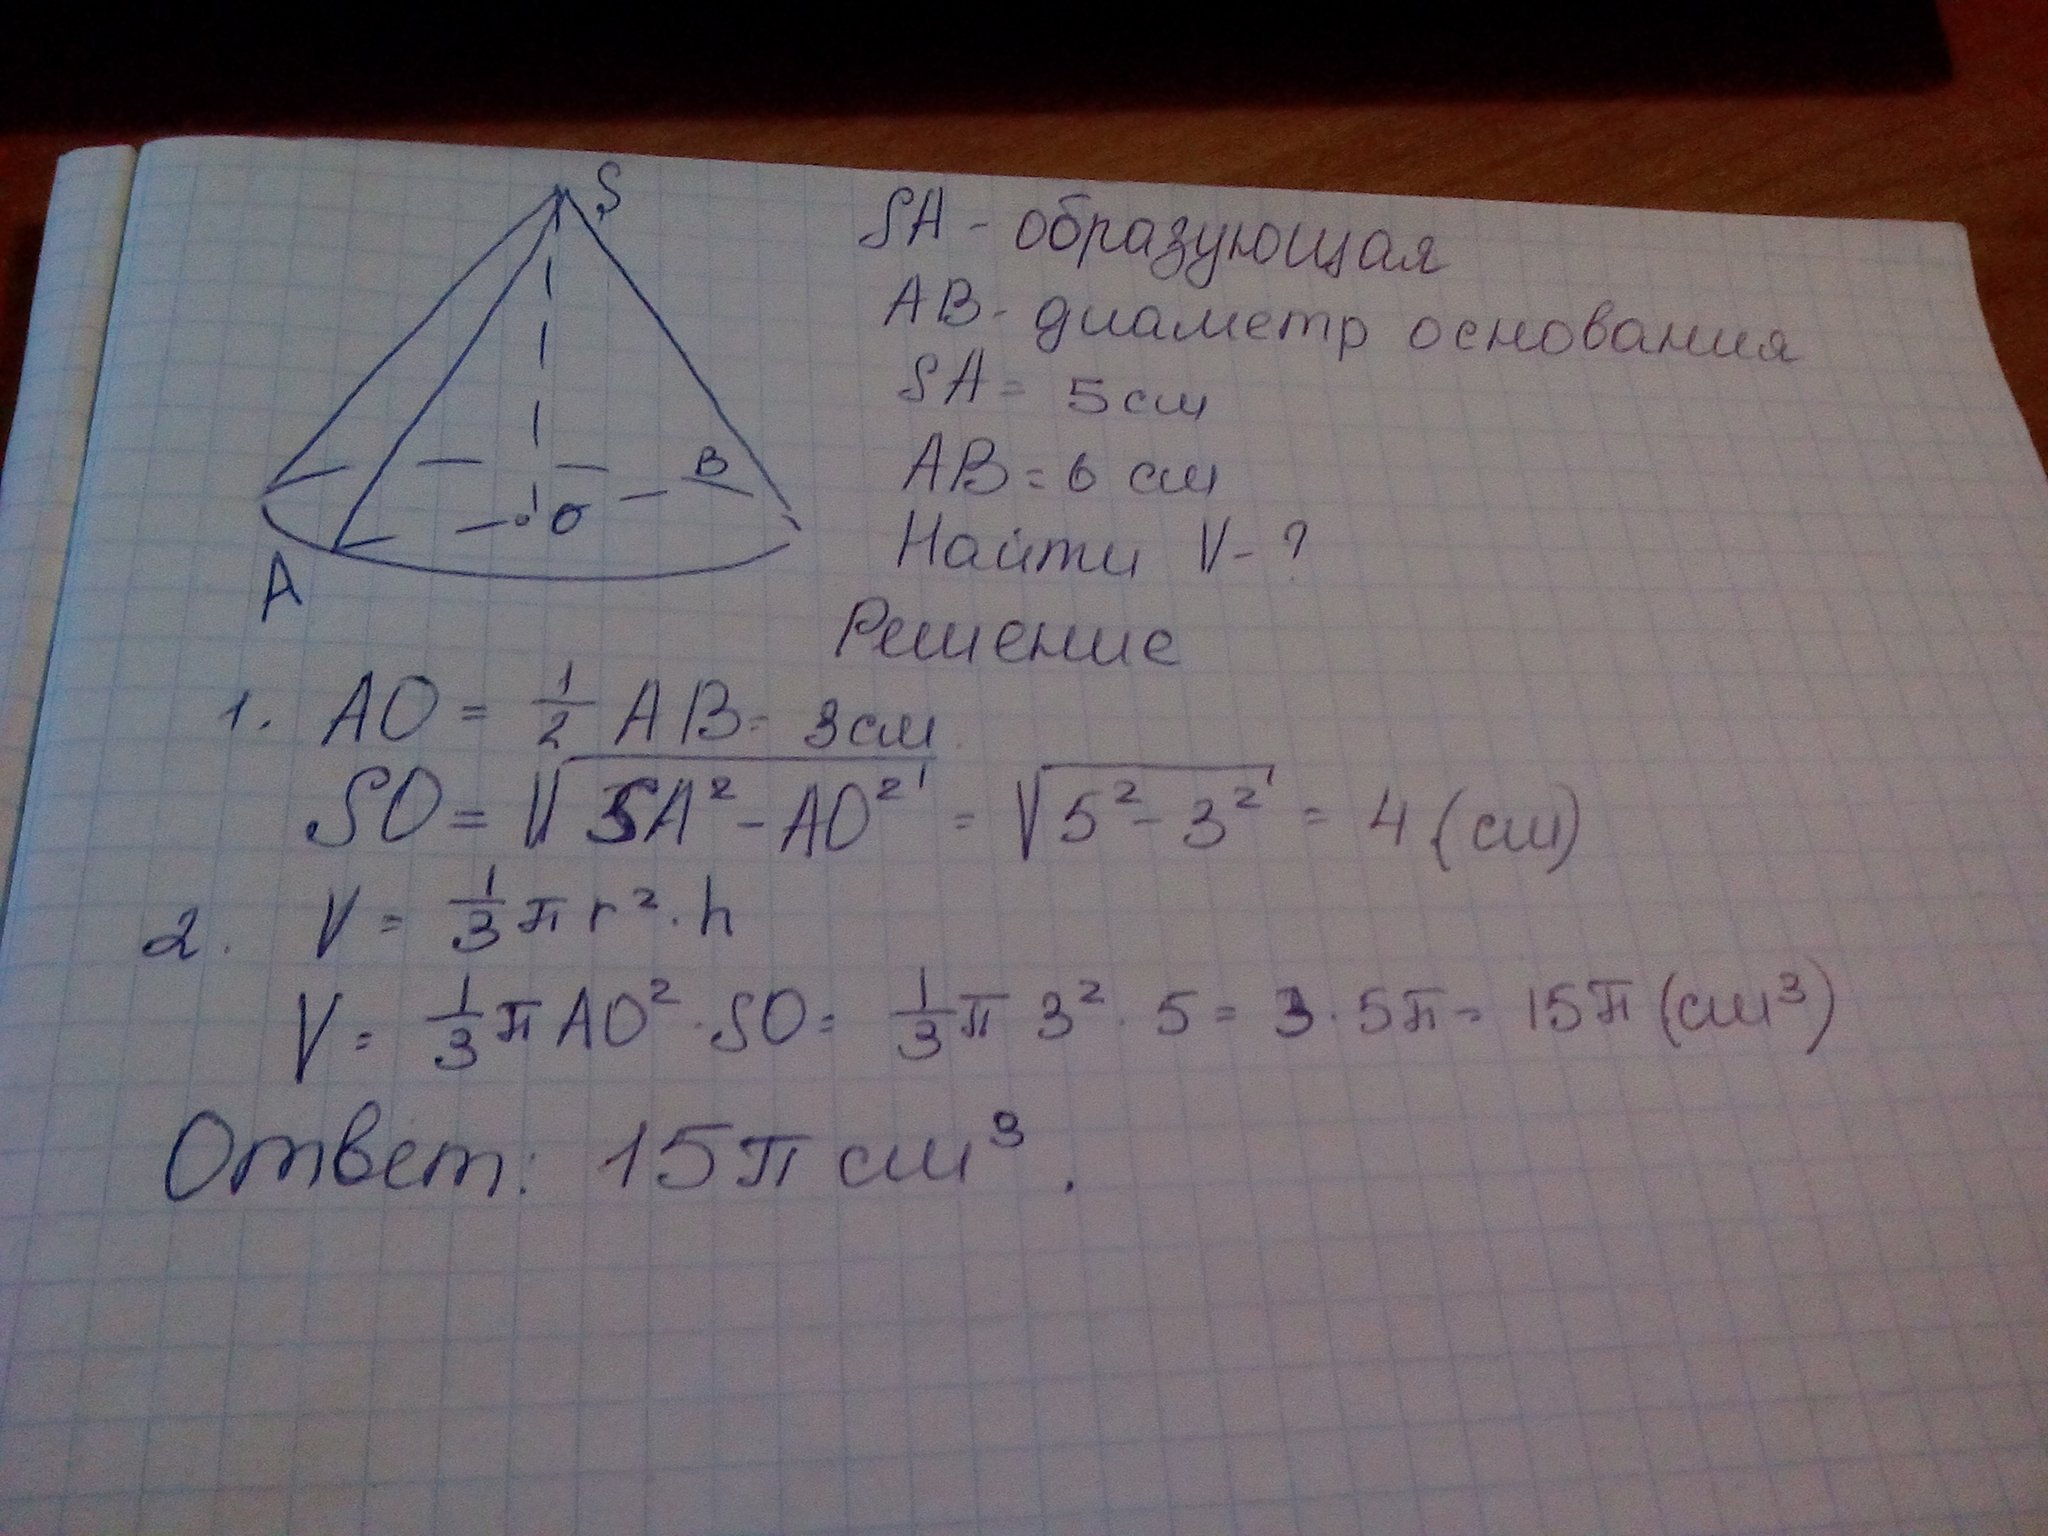 S
SA - образующая
AB - диаметр основания
SA = 5 см
B
AB = 6 см
O
Найти V - ?
A
Решение
1. AO = 1/2 AB = 3 см
SO = √(SA² - AO²) = √(5² - 3²) = 4 (см)
2. V = 1/3 π r² · h
V = 1/3 π AO² · SO = 1/3 π 3² · 5 = 3 · 5π = 15π (см³)
Ответ: 15π см³.